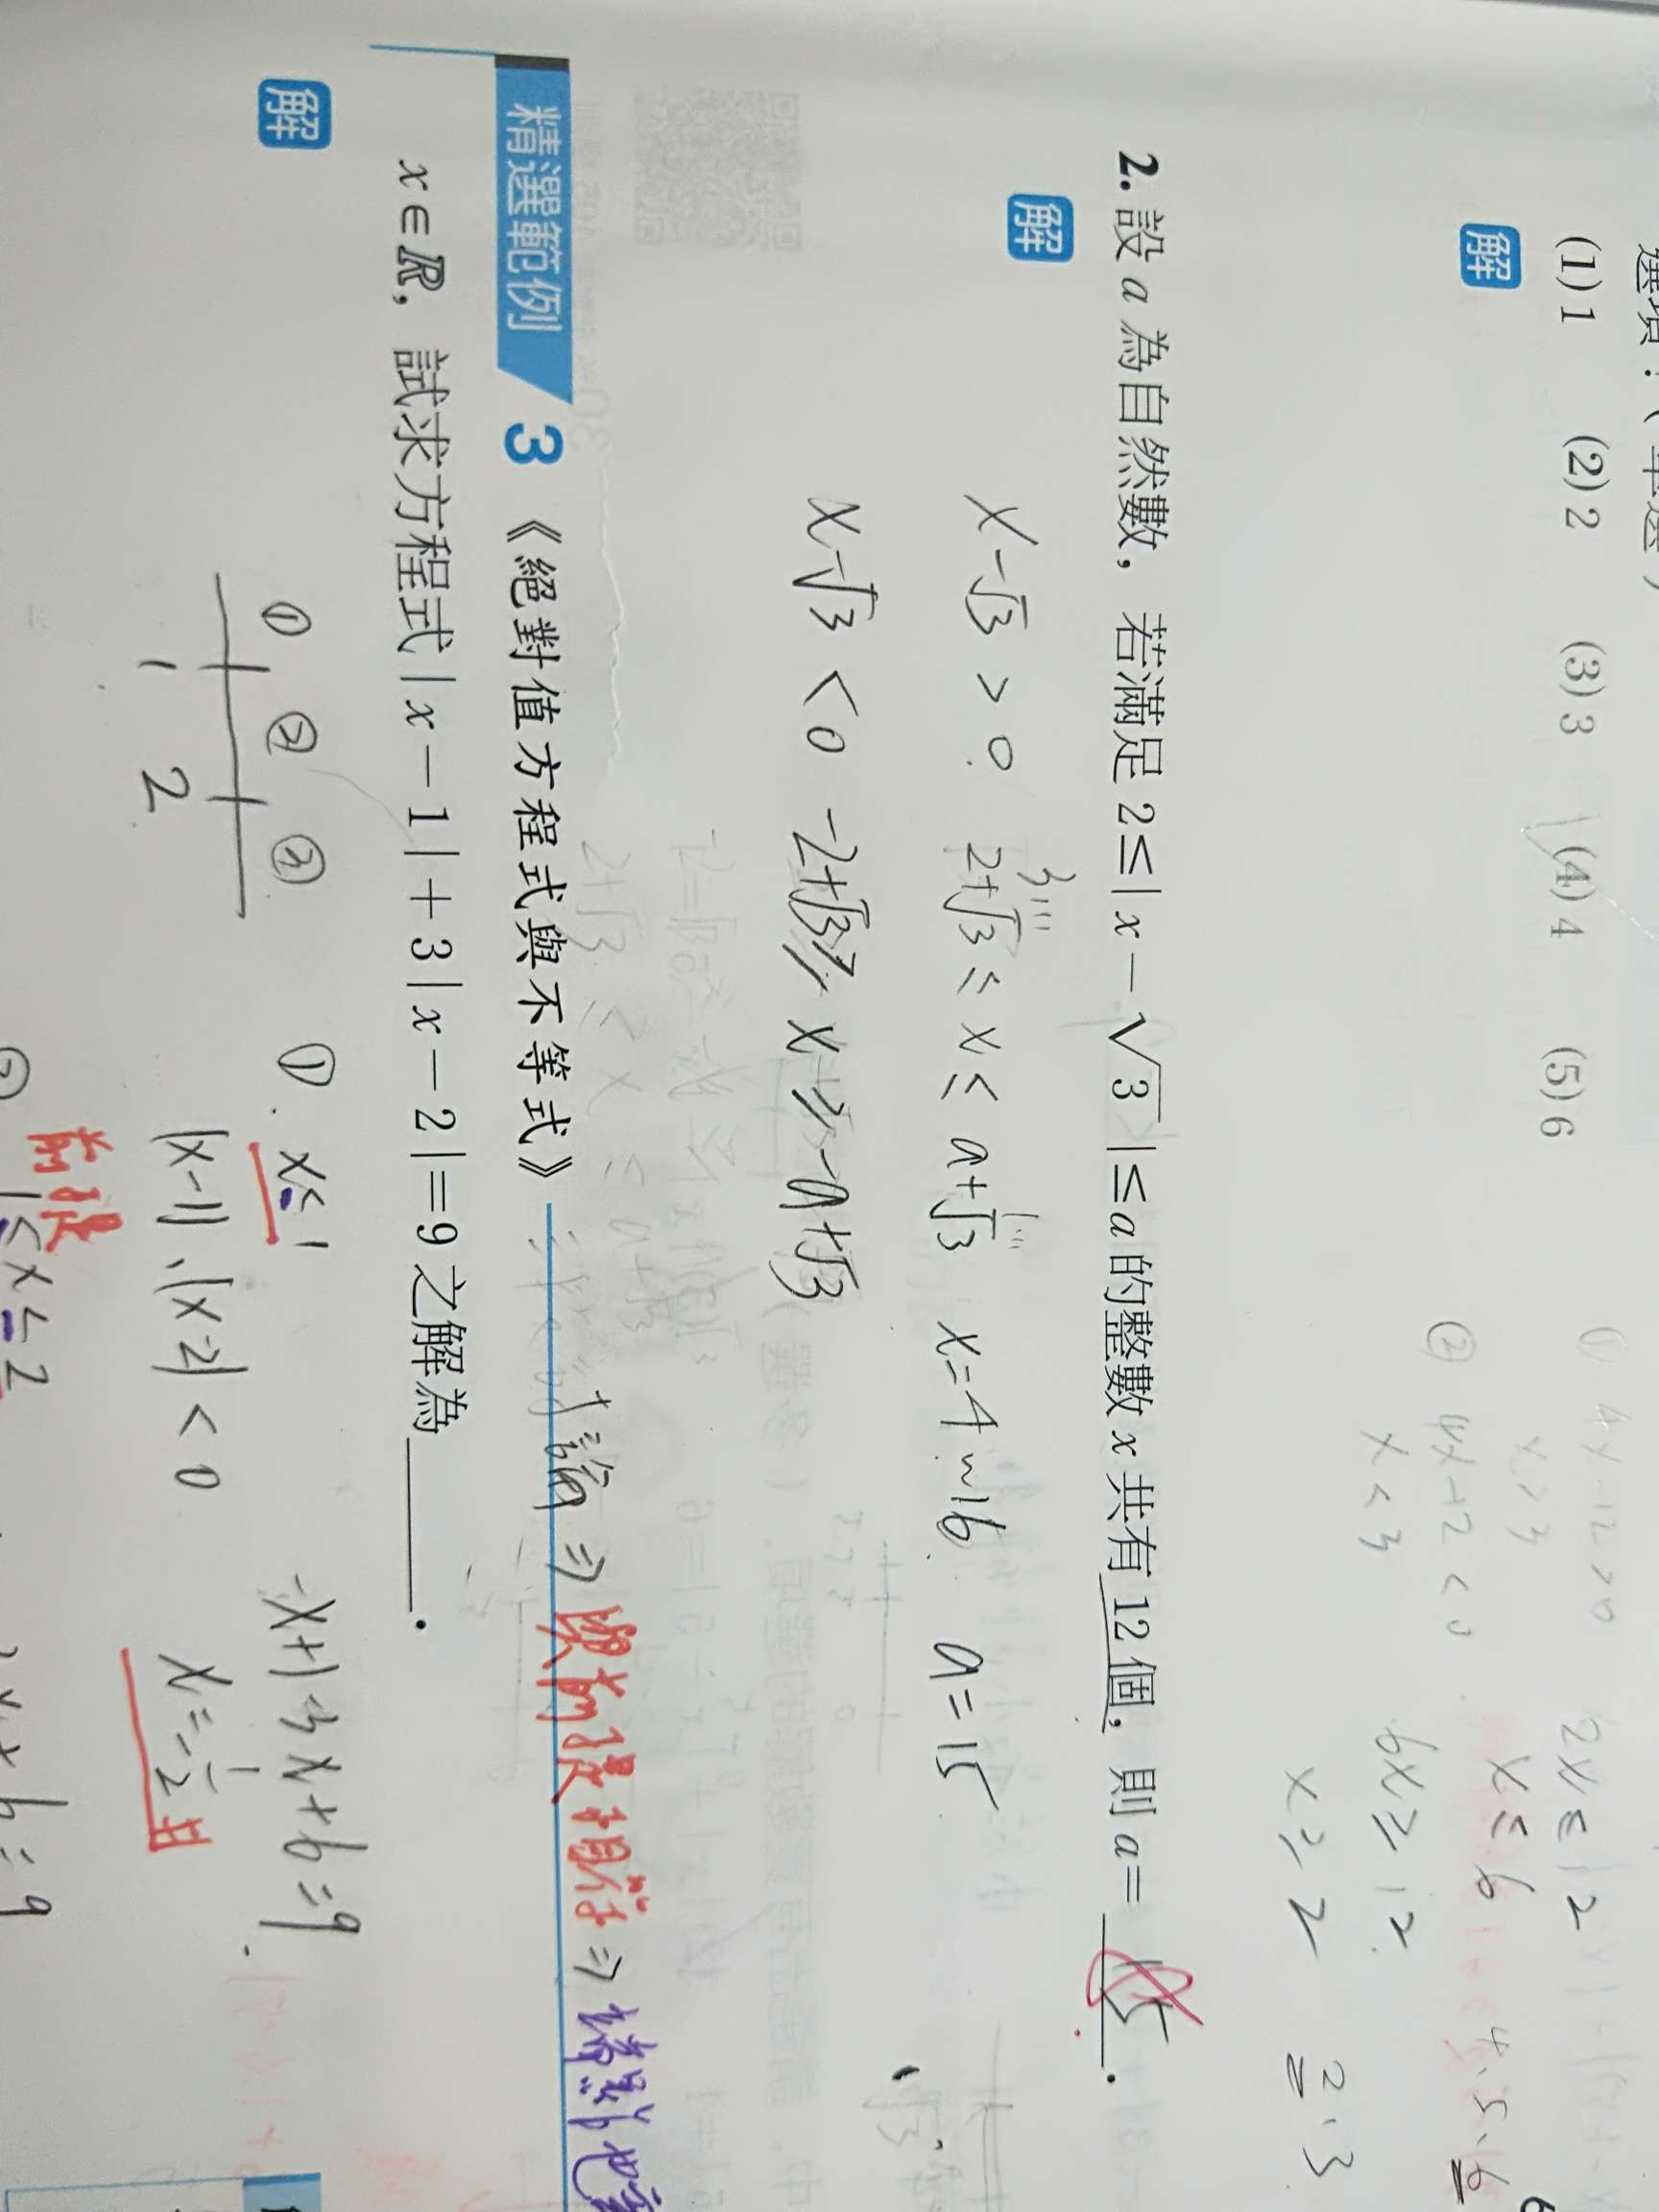 (1) 1 (2) 2 (3) 3 (4) 4 (5) 6
解
① 4x-12>0 2x≤12
x>3 x≤6 4、5、6
② 4x-12<0 6x≥12
x<3 x≥2 2、3
2. 設 a 為自然數，若滿足 2≤|x-√3|≤a 的整數 x 共有 12 個，則 a= 15 .
解
x-√3>0 2+√3≤x≤a+√3 x=4~16 a=15
3... 1...
x-√3<0 -2+√3≥x≥-a+√3
精選範例 3 《絕對值方程式與不等式》
討論⇒與前提相符⇒
x∈ℝ，試求方程式 |x-1|+3|x-2|=9 之解為 ______ .
解
① ② ③
1 2
① x<1 -x+1-3x+6=9
|x-1|、|x-2|<0 x=-1/2
前提
1≤x≤2